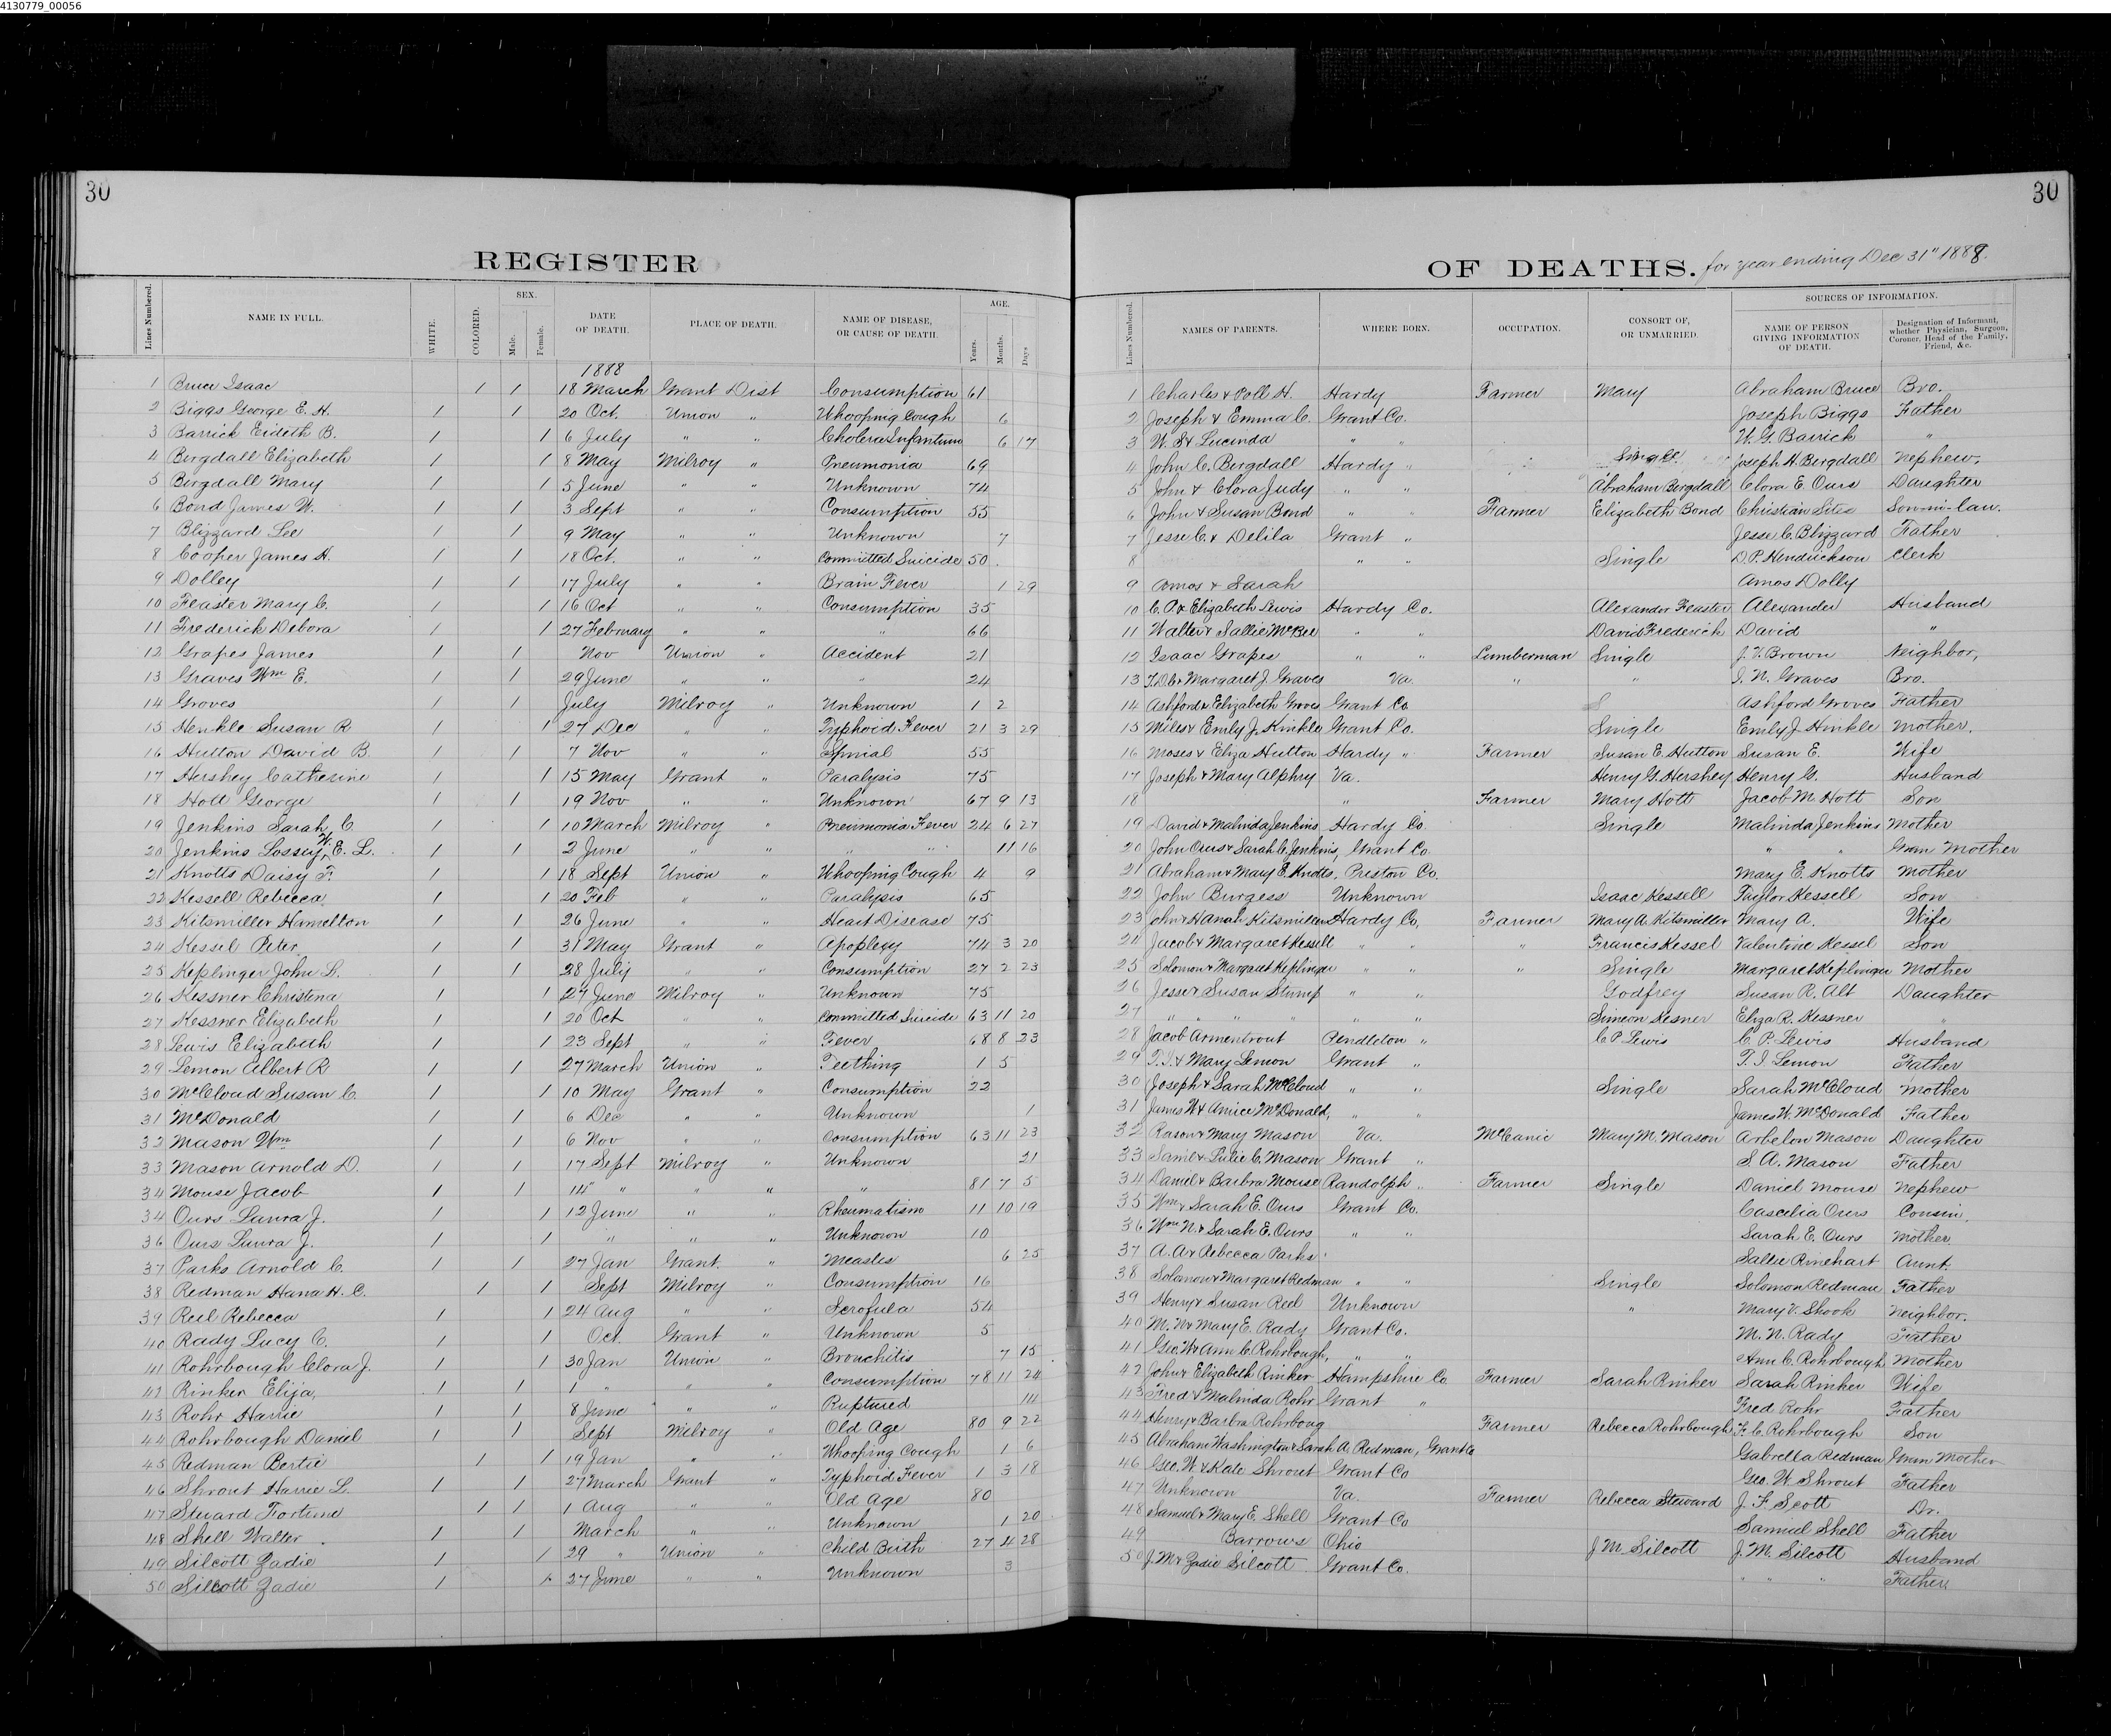 4130779_00056
30
30
REGISTER
OF DEATHS. for year ending Dec 31" 1888.
Lines Numbered. NAME IN FULL. WHITE. COLORED. SEX. Male. Female. DATE OF DEATH. PLACE OF DEATH. NAME OF DISEASE, OR CAUSE OF DEATH. AGE. Years. Months. Days
Lines Numbered. NAMES OF PARENTS. WHERE BORN. OCCUPATION. CONSORT OF, OR UNMARRIED. SOURCES OF INFORMATION. NAME OF PERSON GIVING INFORMATION OF DEATH. Designation of Informant, whether Physician, Surgeon, Coroner, Head of the Family, Friend, &c.
1888
1 Bruce Isaac 1 1 18 March Grant Dist Consumption 61
2 Biggs George E. H. 1 1 20 Oct. Union " Whooping Cough 6
3 Barrick Eideth B. 1 1 6 July " " Cholera Infantum 6 17
4 Bergdall Elizabeth 1 1 8 May Milroy " Pneumonia 69
5 Bergdall Mary 1 1 5 June " " Unknown 74
6 Bond James W. 1 1 3 Sept " " Consumption 55
7 Blizzard Lee 1 1 9 May " " Unknown 7
8 Cooper James H. 1 1 18 Oct. " " Committed Suicide 50
9 Dolley 1 1 17 July " " Brain Fever 1 29
10 Feaster Mary C. 1 1 16 Oct " " Consumption 35
11 Frederick Debora 1 1 27 February " " " 66
12 Grapes James 1 1 Nov Union " Accident 21
13 Graves Wm E. 1 1 29 June " " " 24
14 Groves 1 1 July Milroy " Unknown 1 2
15 Henkle Susan R 1 1 27 Dec " " Typhoid Fever 21 3 29
16 Hutton David B. 1 1 7 Nov " " Spinial 55
17 Hershey Catherine 1 1 15 May Grant " Paralysis 75
18 Hott George 1 1 19 Nov " " Unknown 67 9 13
19 Jenkins Sarah C. 1 1 10 March Milroy " Pneumonia Fever 24 6 27
20 Jenkins Lossey W. E. L. 1 1 2 June " " " " 11 16
21 Knotts Daisy F. 1 1 18 Sept Union " Whooping Cough 4 9
22 Kessell Rebecca 1 1 20 Feb " " Paralysis 65
23 Kitsmiller Hamelton 1 1 26 June " " Heart Disease 75
24 Kessel Peter 1 1 31 May Grant " Apoplexy 74 3 20
25 Keplinger John L. 1 1 28 July " " Consumption 27 2 23
26 Kessner Christena 1 1 27 June Milroy " Unknown 75
27 Kessner Elizabeth 1 1 20 Oct " " Committed Suicide 63 11 20
28 Lewis Elizabeth 1 1 23 Sept " " Fever 68 8 23
29 Lemon Albert R 1 1 27 March Union " Teething 1 5
30 McCloud Susan C. 1 1 10 May Grant " Consumption 22
31 McDonald 1 1 6 Dec " " Unknown 1
32 Mason Wm 1 1 6 Nov " " Consumption 63 11 23
33 Mason Arnold D. 1 1 17 Sept Milroy " Unknown 21
34 Mouse Jacob 1 1 14" " " " " 81 7 5
34 Ours Laura J. 1 1 12 June " " Rheumatism 11 10 19
36 Ours Laura J. 1 1 " " " Unknown 10
37 Parks Arnold C. 1 1 27 Jan Grant. " Measles 6 25
38 Redman Hana H. C. 1 1 Sept Milroy " Consumption 16
39 Reel Rebecca 1 1 24 Aug " " Scrofula 54
40 Rady Lucy C. 1 1 Oct. Grant " Unknown 5
41 Rohrbough Clora J. 1 1 30 Jan Union " Bronchitis 7 15
42 Rinker Elija, 1 1 1 " " " Consumption 78 11 24
43 Rohr Harrie 1 1 8 June " " Ruptured 14
44 Rohrbough Daniel 1 1 Sept Milroy " Old Age 80 9 22
45 Redman Bertie 1 1 19 Jan " " Whooping Cough 1 6
46 Shrout Harrie L. 1 1 27 March Grant " Typhoid Fever 1 3 18
47 Steward Fortune 1 1 1 Aug " " Old Age 80
48 Shell Walter 1 1 March " " Unknown 1 20
49 Silcott Zadie 1 1 29 " Union " Child Birth 27 4 28
50 Silcott Zadie 1 1 27 June " " Unknown 3
1 Charles & Poll H. Hardy Farmer Mary Abraham Bruce Bro.
2 Joseph & Emma C. Grant Co. Joseph Biggs Father
3 W. G & Lucinda " " W. G. Barrick "
4 John C. Bergdall Hardy " Single Joseph H. Bergdall Nephew.
5 John & Clora Judy " " Abraham Bergdall Clora E. Ours Daughter
6 John & Susan Bond " " Farmer Elizabeth Bond Christian Sites Son-in-law.
7 Jesse C. & Delila Grant " Jesse C. Blizzard Father
8 " " Single D. P. Hendrickson Clerk
9 Amos & Sarah Amos Dolly
10 C. P. & Elizabeth Lewis Hardy Co. Alexander Feaster Alexander Husband
11 Walter & Sallie McBee " " David Frederick David "
12 Isaac Grapes " " Lumberman Single J. V. Brown Neighbor,
13 T. D. C. & Margaret J. Graves Va. " " I. N. Graves Bro.
14 Ashford & Elizabeth Groves Grant Co S Ashford Groves Father
15 Miles & Emily J. Hinkle Grant Co. Single Emily J Hinkle Mother.
16 Moses & Eliza Hutton Hardy " Farmer Susan E. Hutton Susan E. Wife
17 Joseph & Mary Alphry Va. Henry G. Hershey Henry G. Husband
18 " Farmer Mary Hott Jacob M. Hott Son
19 David & Malinda Jenkins Hardy Co. Single Malinda Jenkins Mother
20 John Ours & Sarah C. Jenkins, Grant Co. " " Gran Mother
21 Abraham & Mary E. Knotts, Preston Co. Mary E. Knotts Mother
22 John Burgess Unknown Isaac Kessell Taylor Kessell Son
23 John & Hanah Kitsmiller Hardy Co, Farmer Mary A. Kitsmiller Mary A. Wife
24 Jacob & Margaret Kessell " " " Francis Kessel Valentine Kessel Son
25 Solomon & Margaret Keplinger " " " Single Margaret Keplinger Mother
26 Jesse & Susan Stump " " Godfrey Susan R. Alt Daughter
27 " " " " " " Simeon Kesner Eliza R. Kessner "
28 Jacob Armentrout Pendleton " C P Lewis C. P. Lewis Husband
29 T. I. & Mary Lemon Grant " T. I. Lemon Father
30 Joseph & Sarah McCloud " " Single Sarah McCloud Mother
31 James W & Amice McDonald, " " James W. McDonald Father
32 Rason & Mary Mason Va. McCanic Mary M. Mason Arbelon Mason Daughter
33 Saml & Lulie C. Mason Grant " S. A. Mason Father
34 Daniel & Barbra Mouse Randolph " Farmer Single Daniel Mouse Nephew
35 Wm & Sarah E. Ours Grant Co. Cascelia Ours Cousin,
36 Wm N. & Sarah E. Ours " " Sarah E. Ours Mother
37 A. A & Rebecca Parks Sallie Rinehart Aunt.
38 Solomon & Margaret Redman " " Single Solomon Redman Father
39 Henry & Susan Reel Unknown " Mary V. Shook Neighbor.
40 M. N. & Mary E. Rady Grant Co. M. N. Rady Father
41 Geo. W. & Ann C. Rohrbough, " " Ann C. Rohrbough Mother
42 John & Elizabeth Rinker Hampshire Co Farmer Sarah Rinker Sarah Rinker Wife
43 Fred & Malinda Rohr Grant " Fred Rohr Father
44 Henry & Barbra Rohrboug Farmer Rebecca Rohrbough F. C. Rohrbough Son
45 Abraham Washington & Sarah A. Redman, Grant Co Gabrella Redman Gran Mother
46 Geo. W. & Kate Shrout Grant Co Geo. W. Shrout Father
47 Unknown Va. Farmer Rebecca Steward J. F. Scott Dr.
48 Samuel & Mary E. Shell Grant Co Samuel Shell Father
49 Barrows Ohio J M. Silcott J. M. Silcott Husband
50 J. M & Zadie Silcott Grant Co. " " " Father